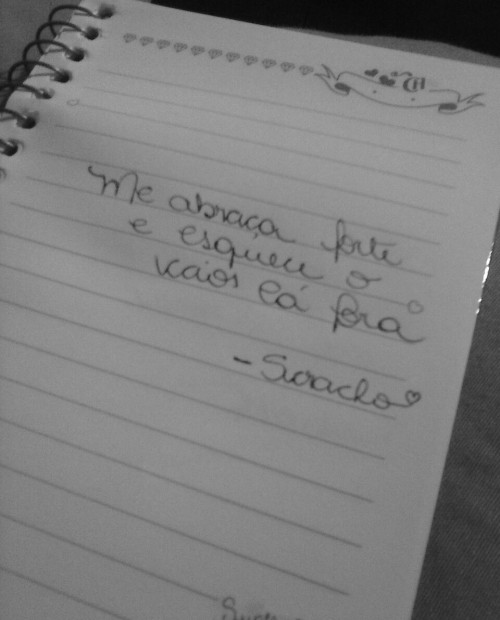 Me abraça forte
e esquece o
kaos lá fora
- Suracho